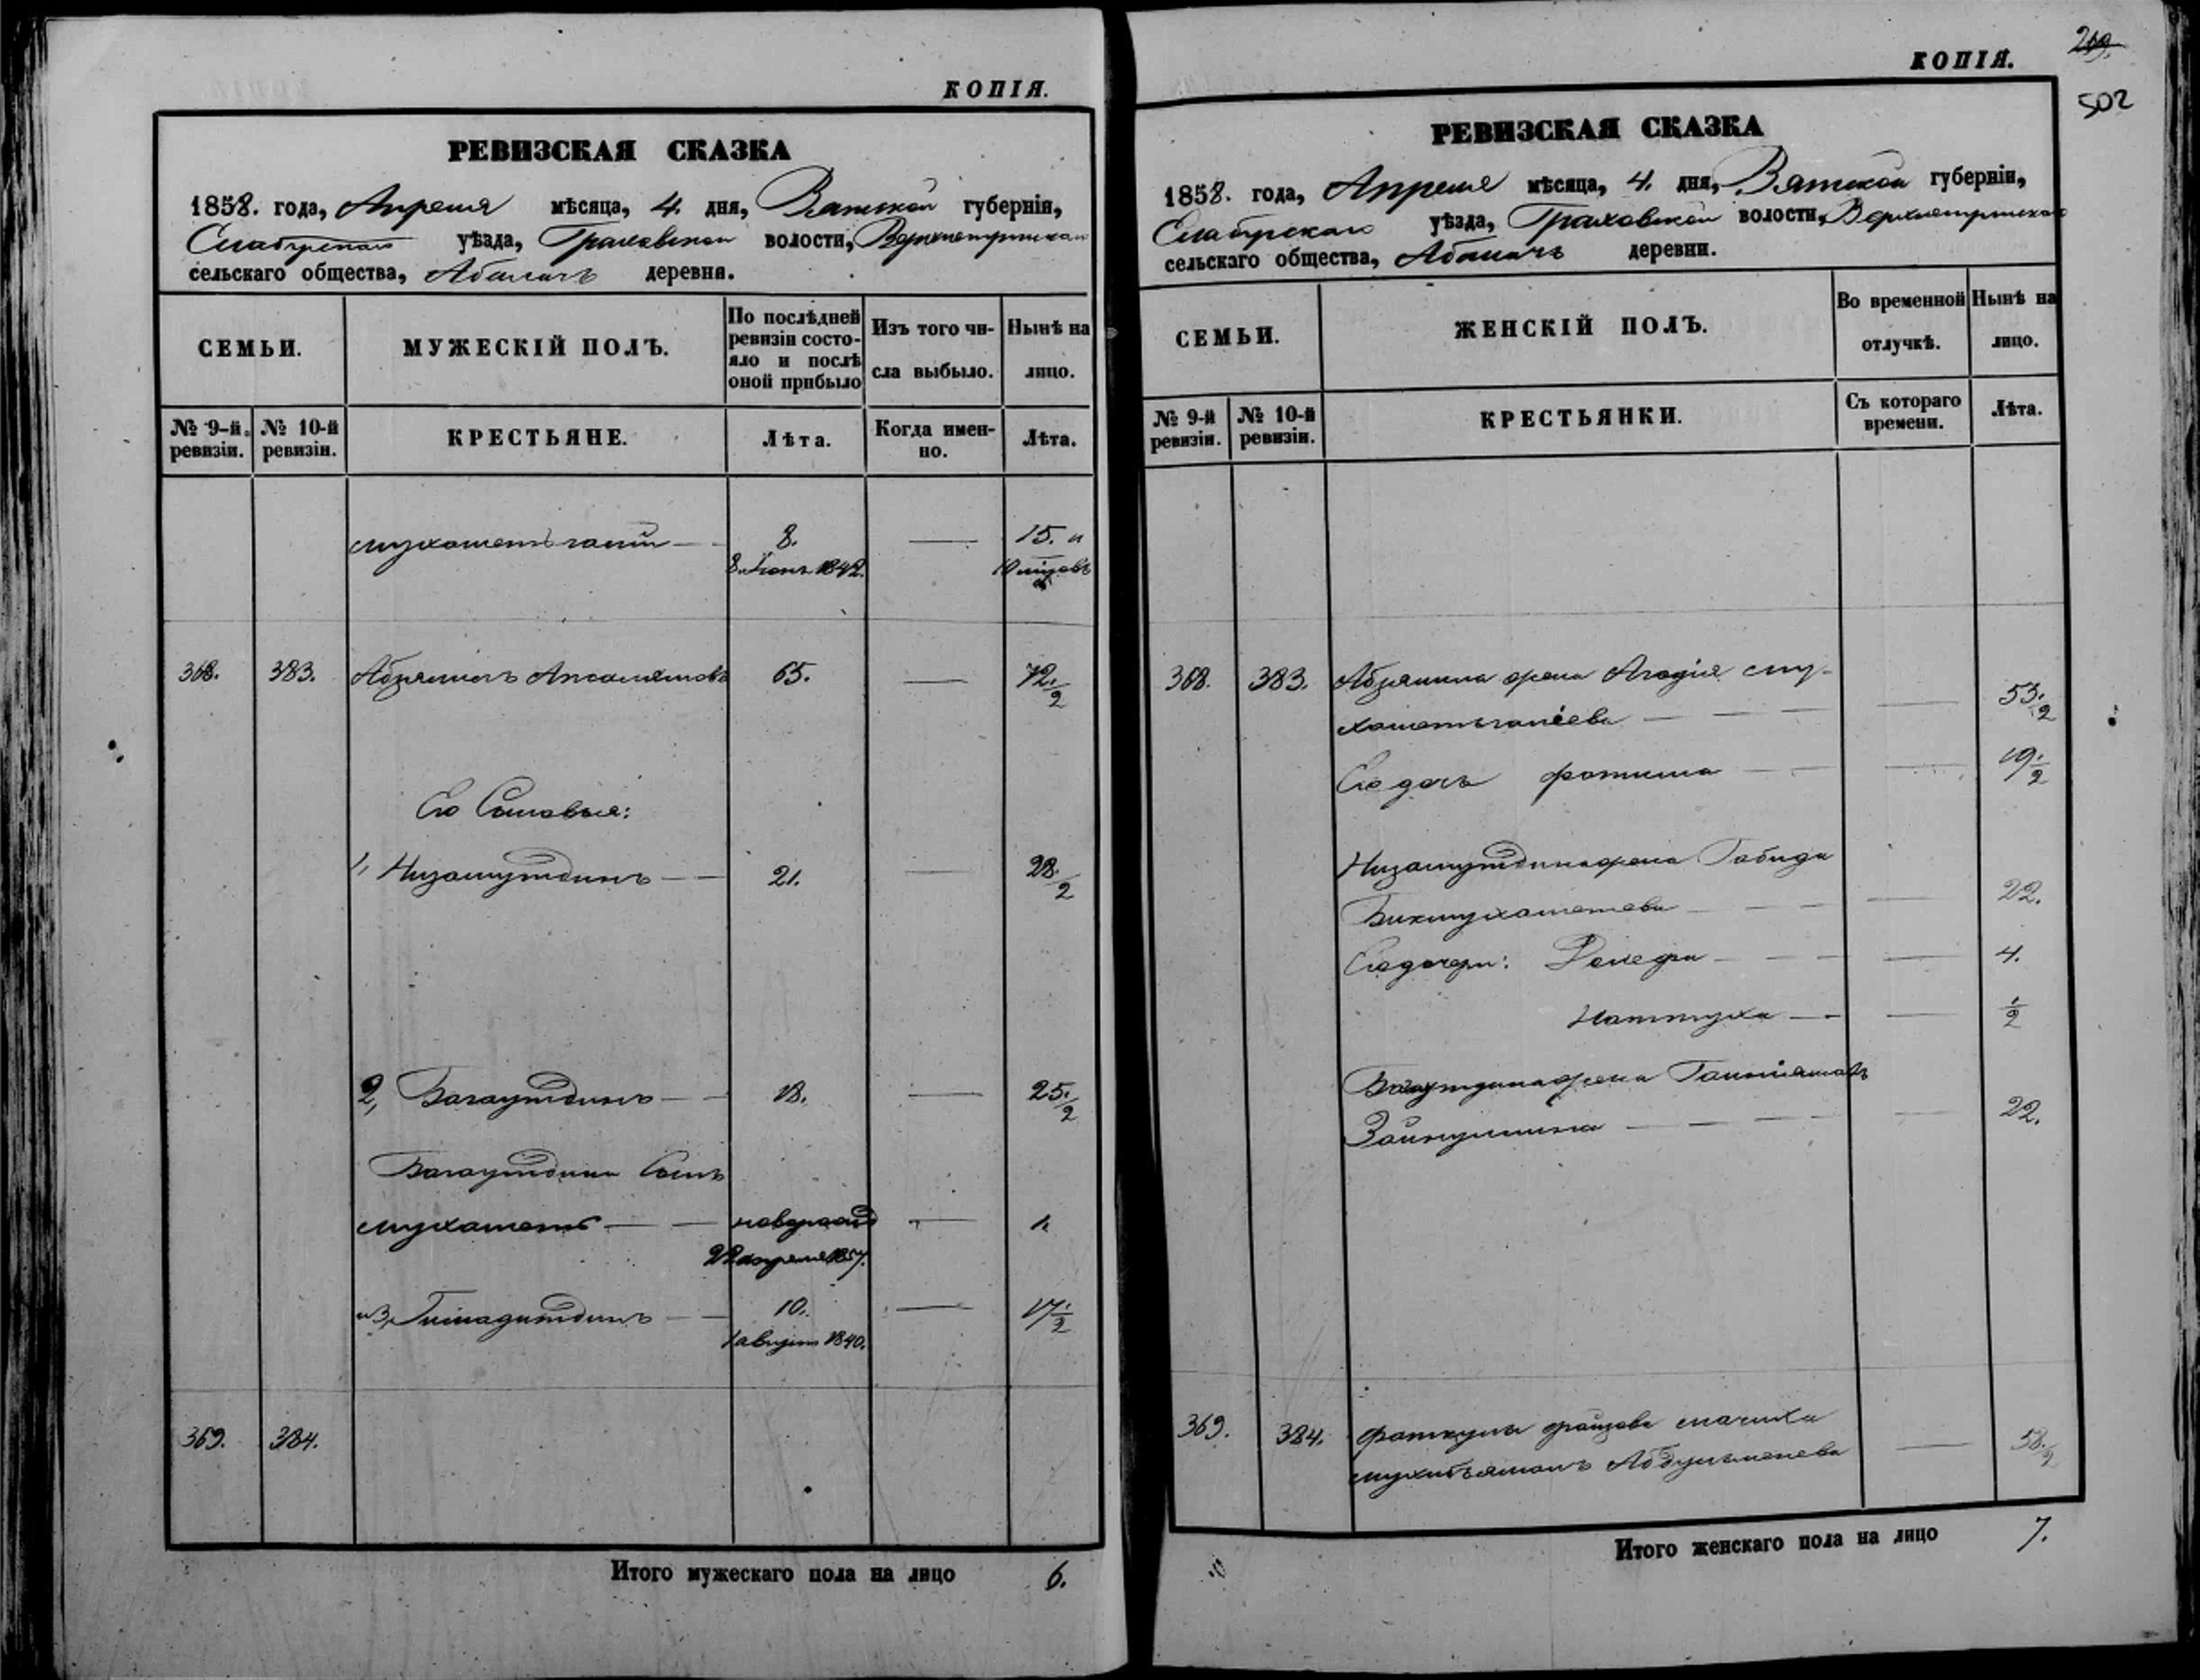 КОПІЯ.
РЕВИЗСКАЯ СКАЗКА
1858. года, Апреля мѣсяца, 4. дня, Вятской губерніи,
Елабужскаго уѣзда, Граховской волости,
сельскаго общества, Абалачъ деревня.
СЕМЬИ.
МУЖЕСКІЙ ПОЛЪ.
По послѣдней
ревизіи состо-
яло и послѣ
оной прибыло
Изъ того чи-
сла выбыло.
Нынѣ на
лицо.
№ 9-й
ревизіи.
№ 10-й
ревизіи.
КРЕСТЬЯНЕ.
Лѣта.
Когда имен-
но.
Лѣта.
мухаметьганій — 8. — 15. и
8. Іюнь 1842. 10 мѣсцовъ
368. 383. 65. — 72. 1/2
Его Сыновья:
1, Низамутдинъ — — 21. — 28. 1/2
2, Багаутдинъ — — 18. — 25. 1/2
Багаутдина Сынъ
мухаметъ — — новорожд — 1.
22 апреля 1857.
и 3, — — 10. — 17 1/2
1 августа 1840.
369. 384.
Итого мужескаго пола на лицо 6.
249.
КОПІЯ.
502
РЕВИЗСКАЯ СКАЗКА
1858. года, Апреля мѣсяца, 4. дня, Вятской губерніи,
Елабужскаго уѣзда, Граховской волости,
сельскаго общества, Абалачъ деревни.
СЕМЬИ.
ЖЕНСКІЙ ПОЛЪ.
Во временной
отлучкѣ.
Нынѣ на
лицо.
№ 9-й
ревизіи.
№ 10-й
ревизіи.
КРЕСТЬЯНКИ.
Съ котораго
времени.
Лѣта.
368. 383. Абзялила жена му-
хаметьганіева — — — — 53. 1/2
Его дочь фатима — — — 19. 1/2
Низамутдина жена Габида
Бикмухаметева — — — — 22.
Его дочери: — — — — 4.
— — — 1/2
Багаутдина жена
Зайнуллина — — — — 22.
369. 384. фаткулы мачиха
— 58. 1/2
Итого женскаго пола на лицо 7.